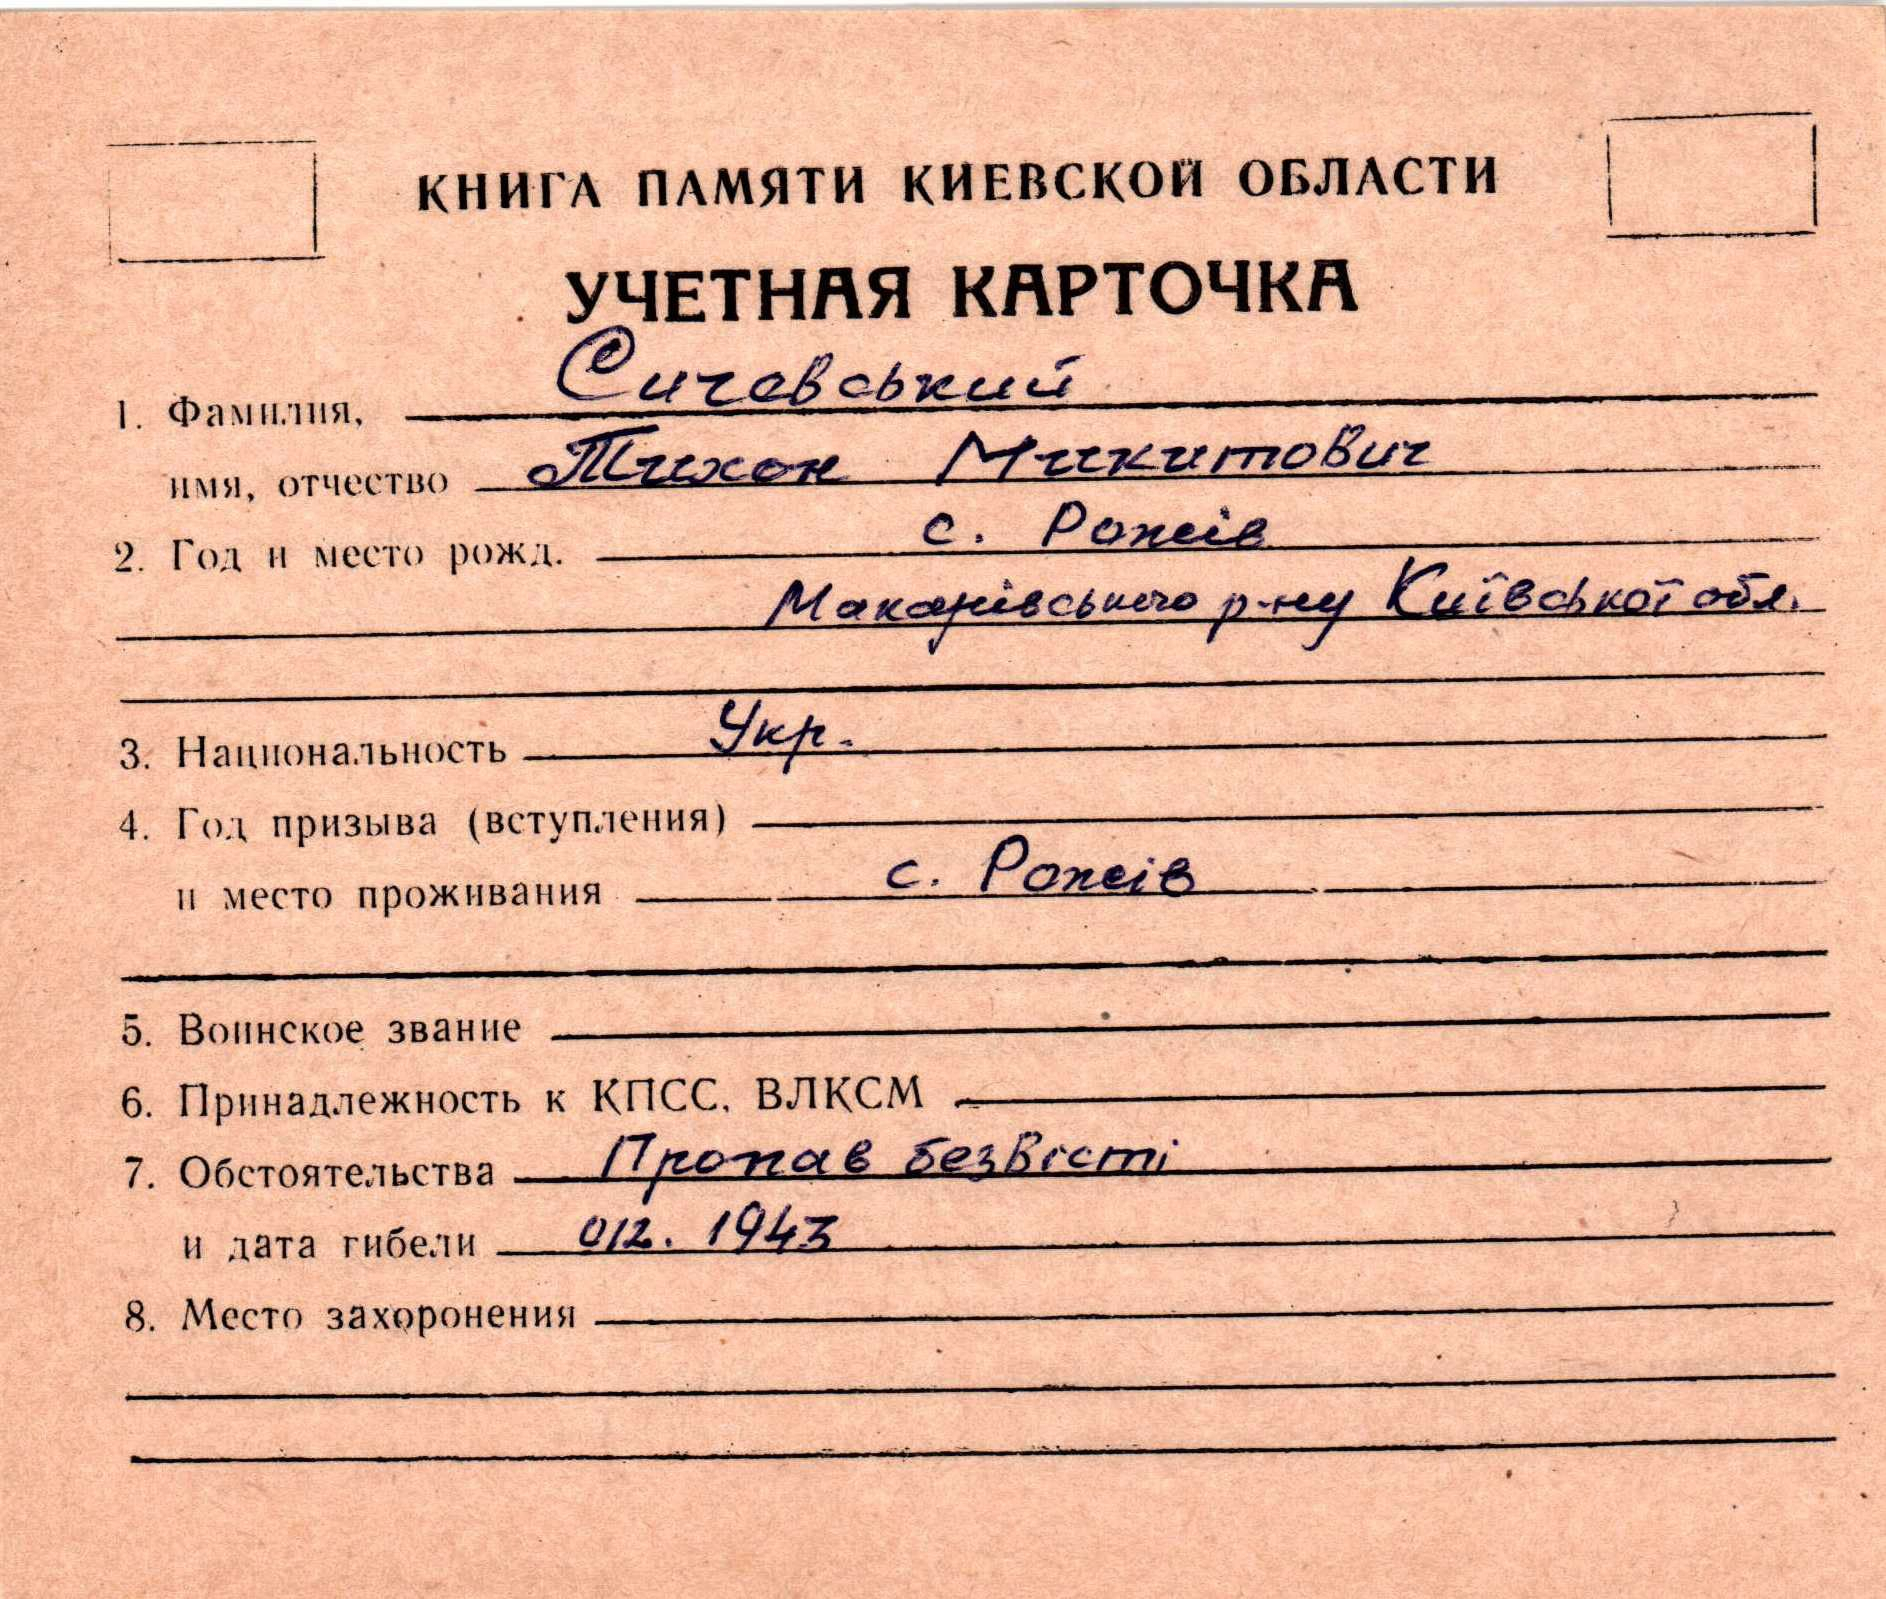 КНИГА ПАМЯТИ КИЕВСКОЙ ОБЛАСТИ
УЧЕТНАЯ КАРТОЧКА
1. Фамилия, Сичевський
имя, отчество Тихон Микитович
2. Год и место рожд. с. Рожів
Макарівського р-ну Київської обл.
3. Национальность Укр.
4. Год призыва (вступления)
и место проживания с. Рожів
5. Воинское звание
6. Принадлежность к КПСС, ВЛКСМ
7. Обстоятельства Пропав безвісті
и дата гибели 012. 1943
8. Место захоронения